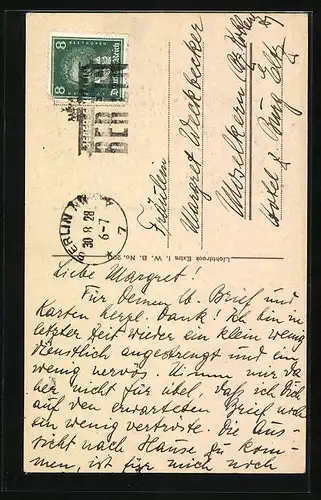 8 BEETHOVEN 8
Deutsches Reich
BERLIN
30.8.28
6-7
Fräulein
Margret Weckbecker
Moselkern
Hotel z. Burg Eltz
Lichtdruck Extra I. W. B. No.
Liebe Margret!
Für Deinen lb. Brief und
Karten herzl. Dank! Ich bin in
letzter Zeit wieder ein klein wenig
dienstlich angestrengt und ein
wenig nervös. Nimm mir da
her nicht für übel, daß ich Dich
auf den erwarteten Brief noch
ein wenig vertröste. Die Aus-
sicht nach Hause zu kom-
men, ist für mich noch